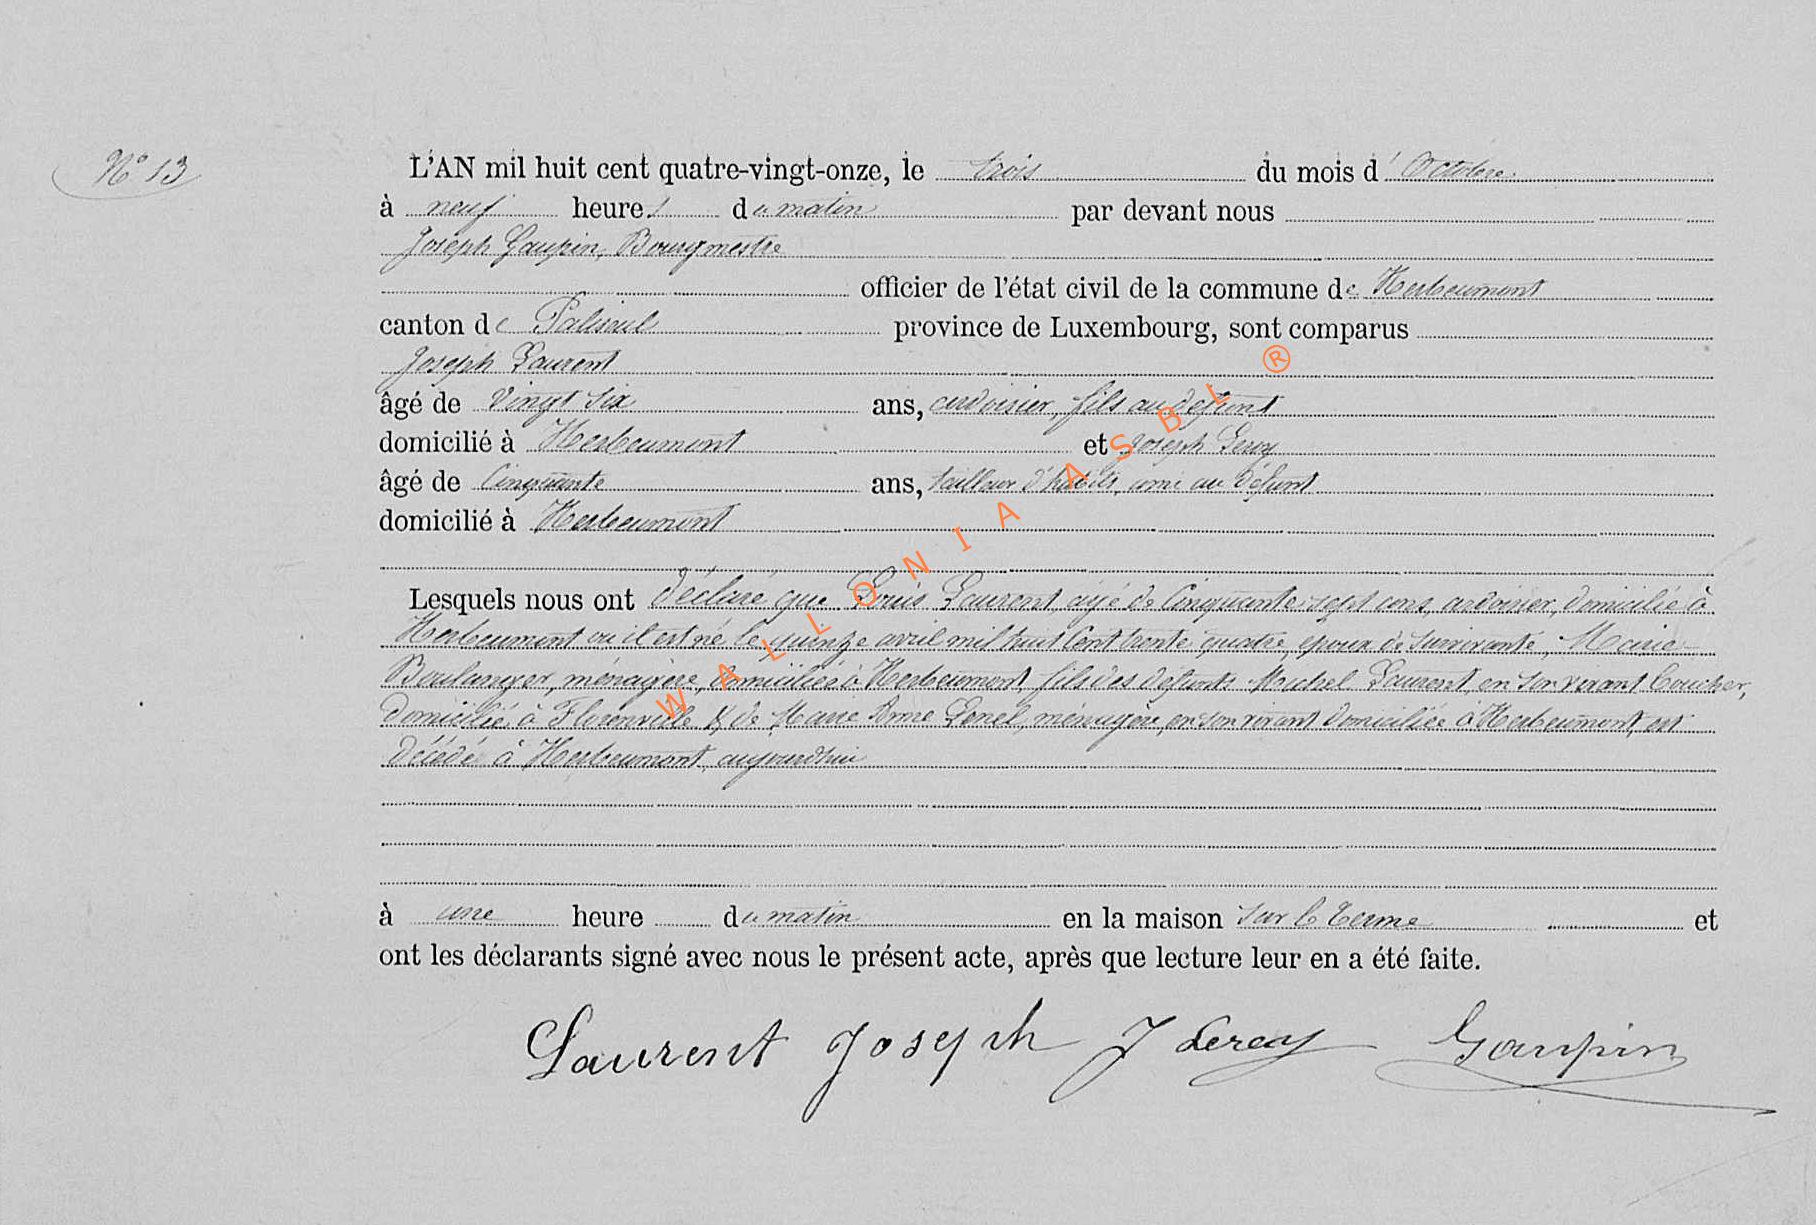 N° 13
L'AN mil huit cent quatre-vingt-onze, le trois du mois d'Octobre
à neuf heures du matin par devant nous
Joseph Gaupin, Bourgmestre
officier de l'état civil de la commune de Herbeumont
canton de Paliseul province de Luxembourg, sont comparus
Joseph Laurent
âgé de Vingt six ans, ardoisier, fils au défunt
domicilié à Herbeumont et Joseph Leroy
âgé de Cinquante ans, tailleur d'habits, ami au défunt
domicilié à Herbeumont
Lesquels nous ont déclaré que Louis Laurent, âgé de Cinquante sept ans, ardoisier, domicilié à
Herbeumont où il est né le quinze avril mil huit Cent trente quatre, époux de survivante, Marie
Boulanger, ménagère, domiciliée à Herbeumont, fils des défunts Michel Laurent, en son vivant Coucher,
domicilié à Florenville & de Marie Anne Lenel, ménagère, en son vivant domiciliée à Herbeumont, est
décédé à Herbeumont, aujourd'hui
à une heure du matin en la maison sur le Terme et
ont les déclarants signé avec nous le présent acte, après que lecture leur en a été faite.
Laurent Joseph J Leroy Gaupin
WALLONIA ASBL ®